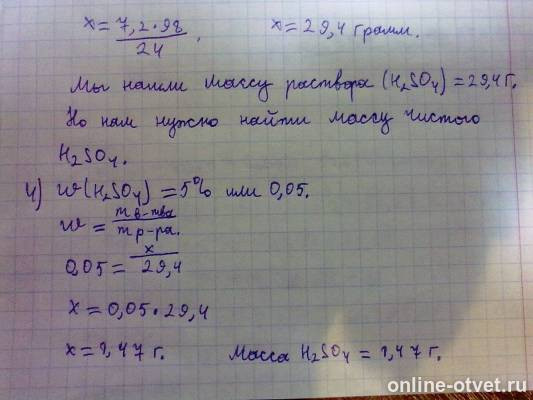 x = 7,2·98 / 24 , x = 29,4 грамм.
Мы нашли массу раствора (H₂SO₄) = 29,4 г.
Но нам нужно найти массу чистого
H₂SO₄.
4) w(H₂SO₄) = 5% или 0,05.
w = m в-тва / m р-ра.
0,05 = x / 29,4
x = 0,05·29,4
x = 1,47 г. Масса H₂SO₄ = 1,47 г.
online-otvet.ru